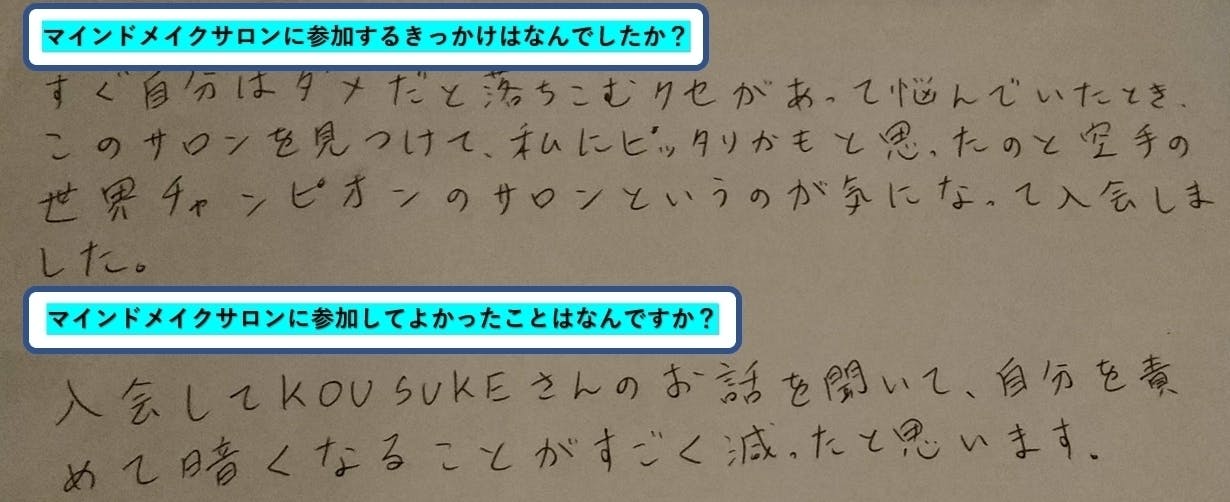 マインドメイクサロンに参加するきっかけはなんでしたか？
すぐ自分はダメだと落ちこむクセがあって悩んでいたとき、
このサロンを見つけて、私にピッタリかもと思ったのと空手の
世界チャンピオンのサロンというのが気になって入会しま
した。
マインドメイクサロンに参加してよかったことはなんですか？
入会してKOUSUKEさんのお話を聞いて、自分を責
めて暗くなることがすごく減ったと思います。